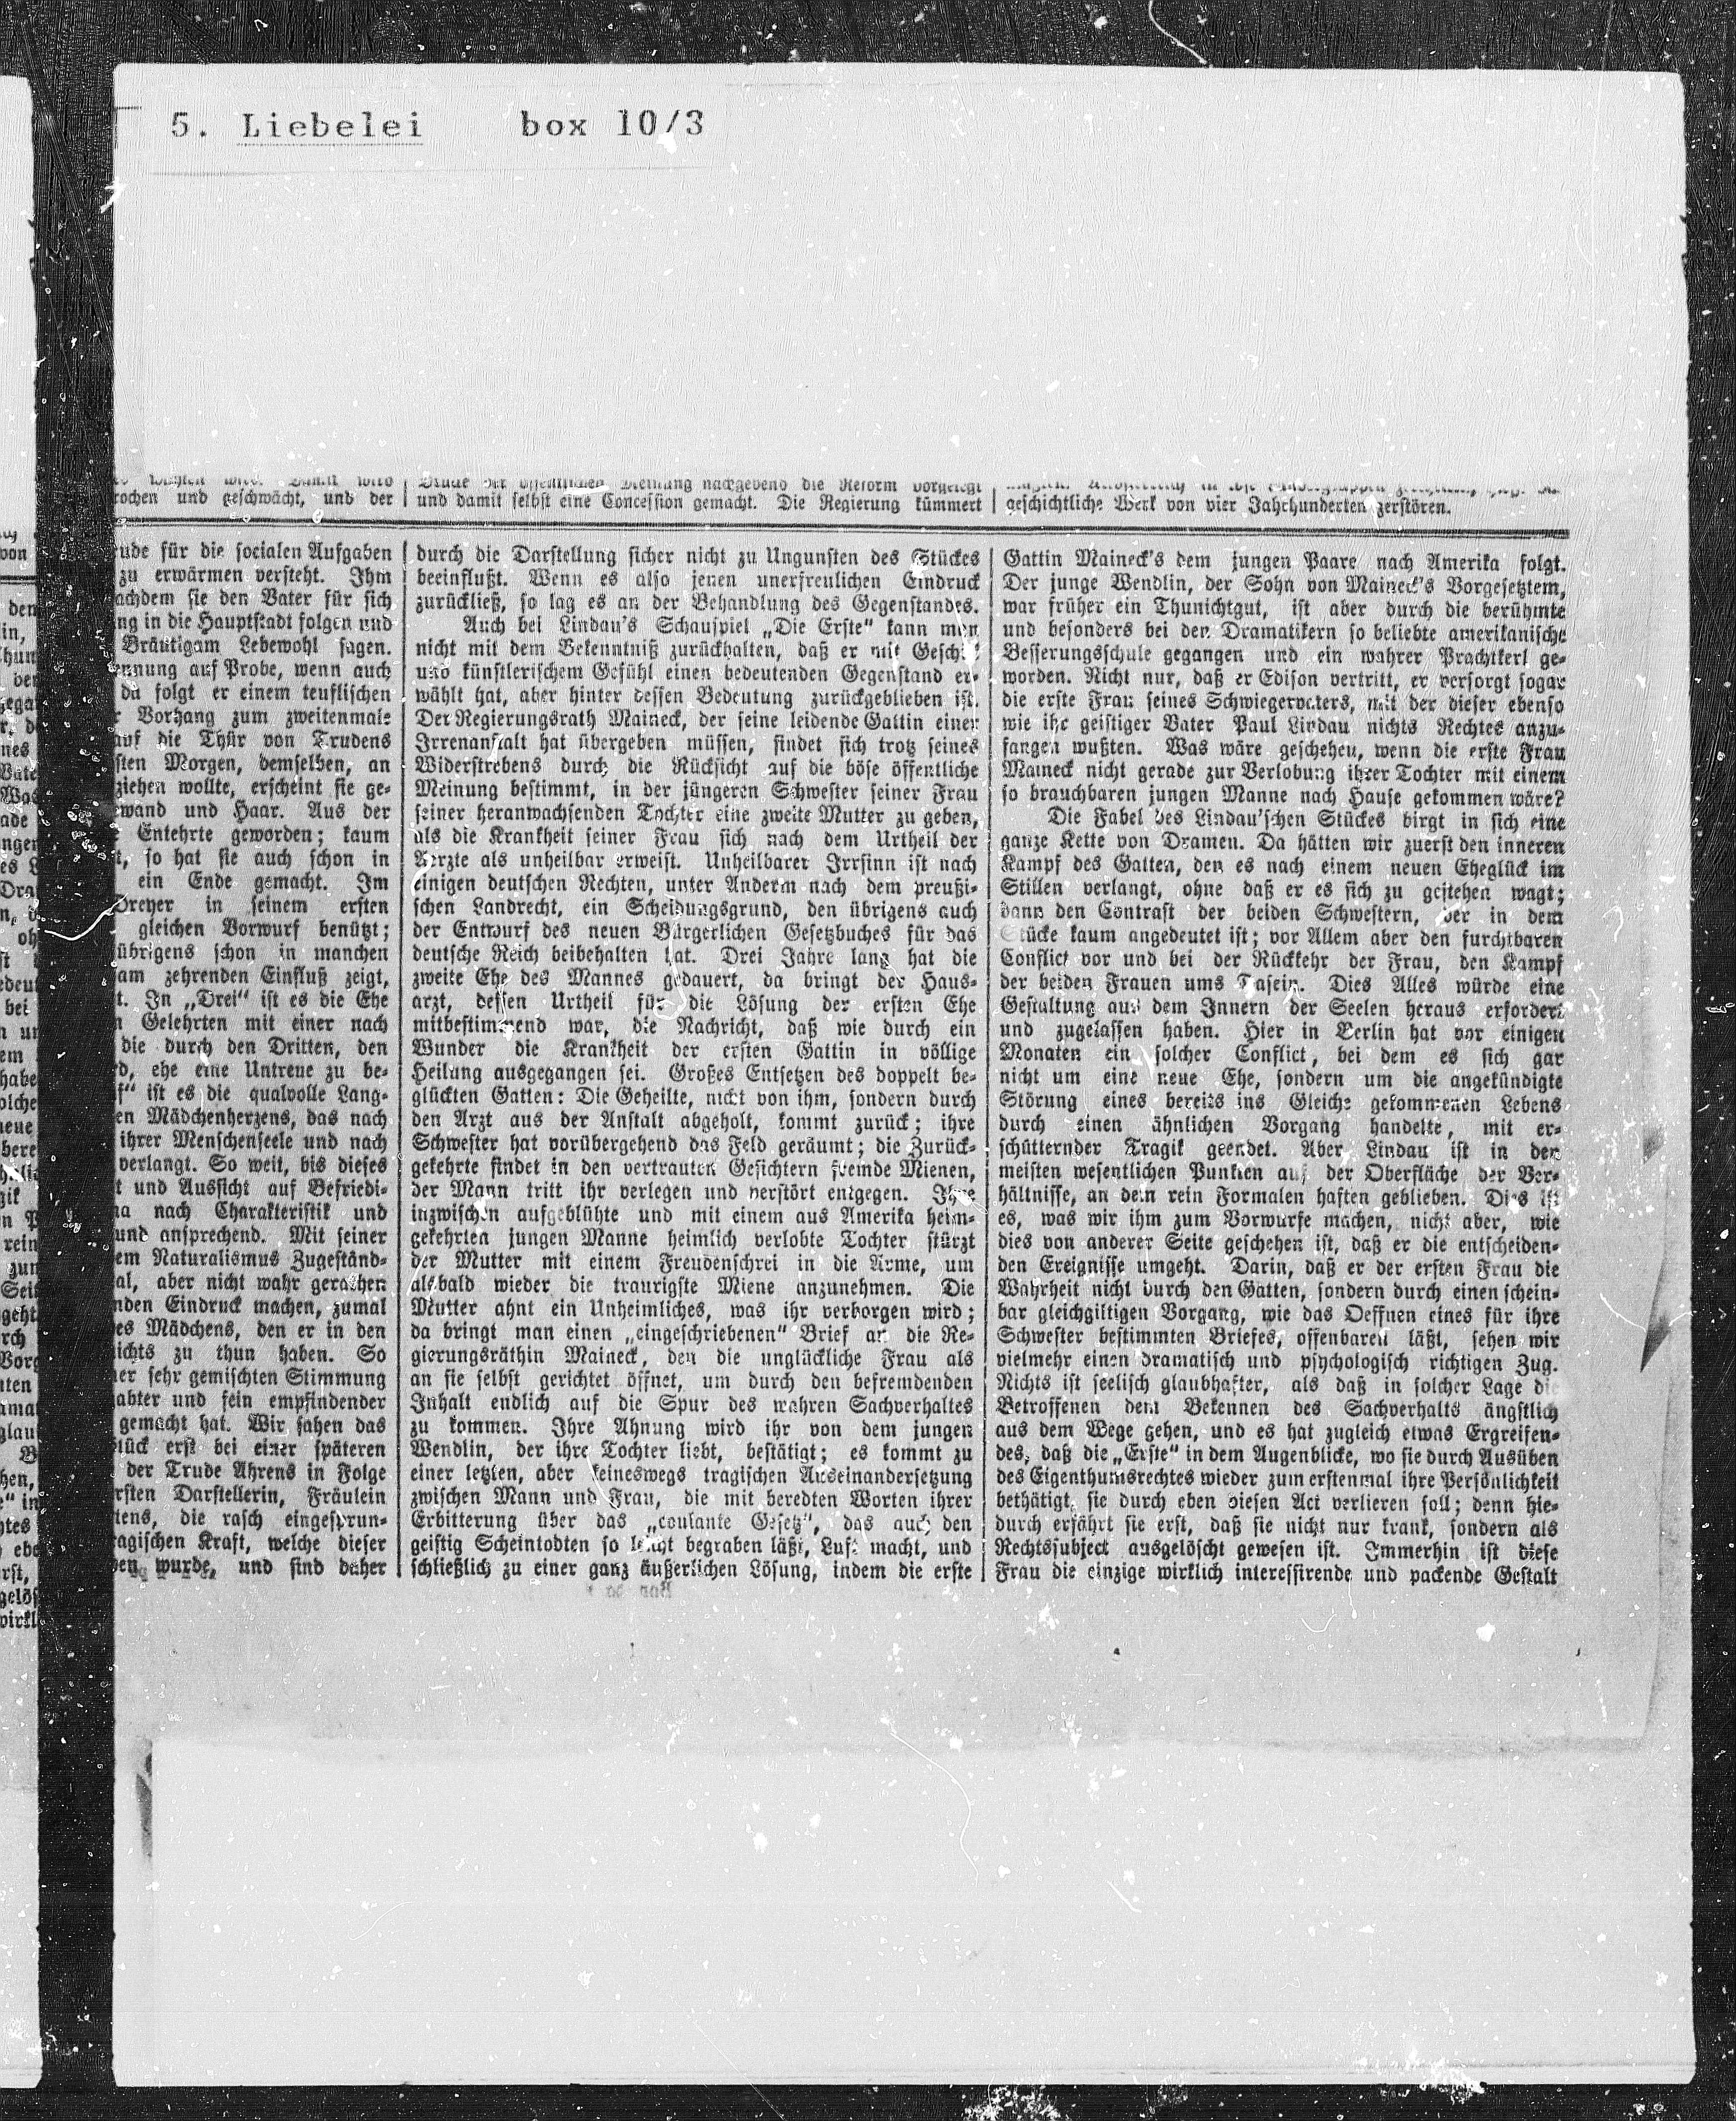 5. Liebelei box 10/3
rochen und geschwächt, und der
und damit selbst eine Concession gemacht. Die Regierung kümmert
geschichtliche Werk von vier Jahrhunderten zerstören.
für die socialen Aufgaben
zu erwärmen versteht. Ihm
sie den Vater für sich
in die Hauptstadt folgen und
Bräutigam Lebewohl sagen.
auf Probe, wenn auch
da folgt er einem teuflischen
Vorhang zum zweitenmale
auf die Thür von Trudens
Morgen, demselben, an
ziehen wollte, erscheint sie ge-
und Haar. Aus der
Entehrte geworden; kaum
so hat sie auch schon in
ein Ende gemacht. Im
Dreyer in seinem ersten
gleichen Vorwurf benützt;
übrigens schon in manchen
zehrenden Einfluß zeigt,
In „Drei“ ist es die Ehe
Gelehrten mit einer nach
die durch den Dritten, den
ehe eine Untreue zu be-
ist es die qualvolle Lang-
Mädchenherzens, das nach
ihrer Menschenseele und nach
verlangt. So weit, bis dieses
und Aussicht auf Befriedi-
nach Charakteristik und
und ansprechend. Mit seiner
Naturalismus Zugeständ-
aber nicht wahr gerathen
Eindruck machen, zumal
Mädchens, den er in den
zu thun haben. So
sehr gemischten Stimmung
und fein empfindender
gemacht hat. Wir sahen das
erst bei einer späteren
der Trude Ahrens in Folge
Darstellerin, Fräulein
die rasch eingesprun-
Kraft, welche dieser
wurde, und sind daher
durch die Darstellung sicher nicht zu Ungunsten des Stückes
beeinflußt. Wenn es also jenen unerfreulichen Eindruck
zurückließ, so lag es an der Behandlung des Gegenstandes.
Auch bei Lindau's Schauspiel „Die Erste“ kann man
nicht mit dem Bekenntniß zurückhalten, daß er mit Geschick
und künstlerischem Gefühl einen bedeutenden Gegenstand er-
wählt hat, aber hinter dessen Bedeutung zurückgeblieben ist.
Der Regierungsrath Maineck, der seine leidende Gattin einer
Irrenanstalt hat übergeben müssen, findet sich trotz seines
Widerstrebens durch die Rücksicht auf die böse öffentliche
Meinung bestimmt, in der jüngeren Schwester seiner Frau
seiner heranwachsenden Tochter eine zweite Mutter zu geben,
als die Krankheit seiner Frau sich nach dem Urtheil der
Aerzte als unheilbar erweist. Unheilbarer Irrsinn ist nach
einigen deutschen Rechten, unter Anderm nach dem preußi-
schen Landrecht, ein Scheidungsgrund, den übrigens auch
der Entwurf des neuen Bürgerlichen Gesetzbuches für das
deutsche Reich beibehalten hat. Drei Jahre lang hat die
zweite Ehe des Mannes gedauert, da bringt der Haus-
arzt, dessen Urtheil für die Lösung der ersten Ehe
mitbestimmend war, die Nachricht, daß wie durch ein
Wunder die Krankheit der ersten Gattin in völlige
Heilung ausgegangen sei. Großes Entsetzen des doppelt be-
glückten Gatten: Die Geheilte, nicht von ihm, sondern durch
den Arzt aus der Anstalt abgeholt, kommt zurück; ihre
Schwester hat vorübergehend das Feld geräumt; die Zurück-
gekehrte findet in den vertrauten Gesichtern fremde Mienen,
der Mann tritt ihr verlegen und verstört entgegen. Ihre
inzwischen aufgeblühte und mit einem aus Amerika heim-
gekehrten jungen Manne heimlich verlobte Tochter stürzt
der Mutter mit einem Freudenschrei in die Arme, um
alsbald wieder die traurigste Miene anzunehmen. Die
Mutter ahnt ein Unheimliches, was ihr verborgen wird;
da bringt man einen „eingeschriebenen“ Brief an die Re-
gierungsräthin Maineck, den die unglückliche Frau als
an sie selbst gerichtet öffnet, um durch den befremdenden
Inhalt endlich auf die Spur des wahren Sachverhaltes
zu kommen. Ihre Ahnung wird ihr von dem jungen
Wendlin, der ihre Tochter liebt, bestätigt; es kommt zu
einer letzten, aber keineswegs tragischen Auseinandersetzung
zwischen Mann und Frau, die mit beredten Worten ihrer
Erbitterung über das „coulante Gesetz“, das auch den
geistig Scheintodten so leicht begraben läßt, Luft macht, und
schließlich zu einer ganz äußerlichen Lösung, indem die erste
Gattin Maineck's dem jungen Paare nach Amerika folgt.
Der junge Wendlin, der Sohn von Maineck's Vorgesetztem,
war früher ein Thunichtgut, ist aber durch die berühmte
und besonders bei den Dramatikern so beliebte amerikanische
Besserungsschule gegangen und ein wahrer Prachtkerl ge-
worden. Nicht nur, daß er Edison vertritt, er versorgt sogar
die erste Frau seines Schwiegervaters, mit der dieser ebenso
wie ihr geistiger Vater Paul Lindau nichts Rechtes anzu-
fangen wußten. Was wäre geschehen, wenn die erste Frau
Maineck nicht gerade zur Verlobung ihrer Tochter mit einem
so brauchbaren jungen Manne nach Hause gekommen wäre?
Die Fabel des Lindau'schen Stückes birgt in sich eine
ganze Kette von Dramen. Da hätten wir zuerst den inneren
Kampf des Gatten, den es nach einem neuen Eheglück im
Stillen verlangt, ohne daß er es sich zu gestehen wagt;
dann den Contrast der beiden Schwestern, der in dem
Stücke kaum angedeutet ist; vor Allem aber den furchtbaren
Conflict vor und bei der Rückkehr der Frau, den Kampf
der beiden Frauen ums Dasein. Dies Alles würde eine
Gestaltung aus dem Innern der Seelen heraus erfordert
und zugelassen haben. Hier in Berlin hat vor einigen
Monaten ein solcher Conflict, bei dem es sich gar
nicht um eine neue Ehe, sondern um die angekündigte
Störung eines bereits ins Gleiche gekommenen Lebens
durch einen ähnlichen Vorgang handelte, mit er-
schütternder Tragik geendet. Aber Lindau ist in den
meisten wesentlichen Punkten auf der Oberfläche der Ver-
hältnisse, an dem rein Formalen haften geblieben. Dies ist
es, was wir ihm zum Vorwurfe machen, nicht aber, wie
dies von anderer Seite geschehen ist, daß er die entscheiden-
den Ereignisse umgeht. Darin, daß er der ersten Frau die
Wahrheit nicht durch den Gatten, sondern durch einen schein-
bar gleichgiltigen Vorgang, wie das Oeffnen eines für ihre
Schwester bestimmten Briefes, offenbaren läßt, sehen wir
vielmehr einen dramatisch und psychologisch richtigen Zug.
Nichts ist seelisch glaubhafter, als daß in solcher Lage die
Betroffenen dem Bekennen des Sachverhalts ängstlich
aus dem Wege gehen, und es hat zugleich etwas Ergreifen-
des, daß die „Erste“ in dem Augenblicke, wo sie durch Ausüben
des Eigenthumsrechtes wieder zum erstenmal ihre Persönlichkeit
bethätigt, sie durch eben diesen Act verlieren soll; denn hie-
durch erfährt sie erst, daß sie nicht nur krank, sondern als
Rechtssubject ausgelöscht gewesen ist. Immerhin ist diese
Frau die einzige wirklich interessirende und packende Gestalt